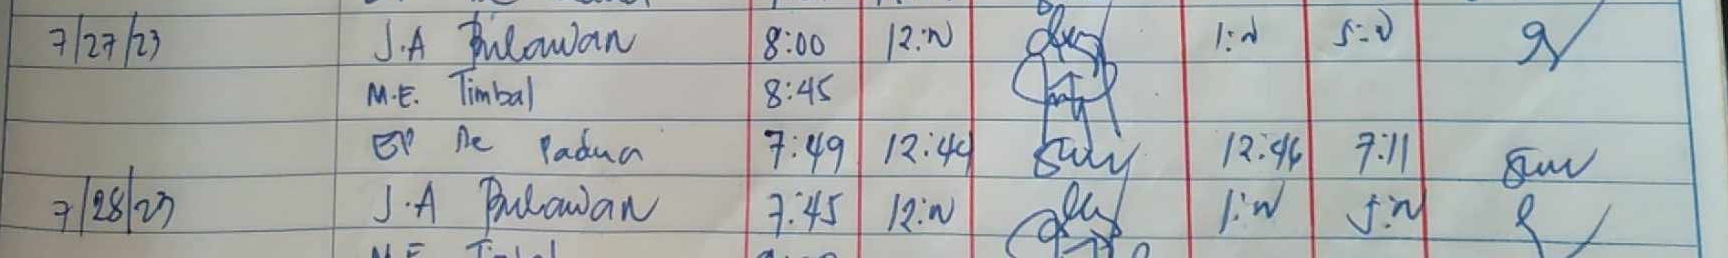 7/27/23 J.A Bulawan 8:00 12:N 1:N 5:N
M.E. Timbal 8:45
EP De Padua 7:49 12:44 12:46 7:11
7/28/23 J.A Bulawan 7:45 12:N 1:N 5:N
M.E. Timbal